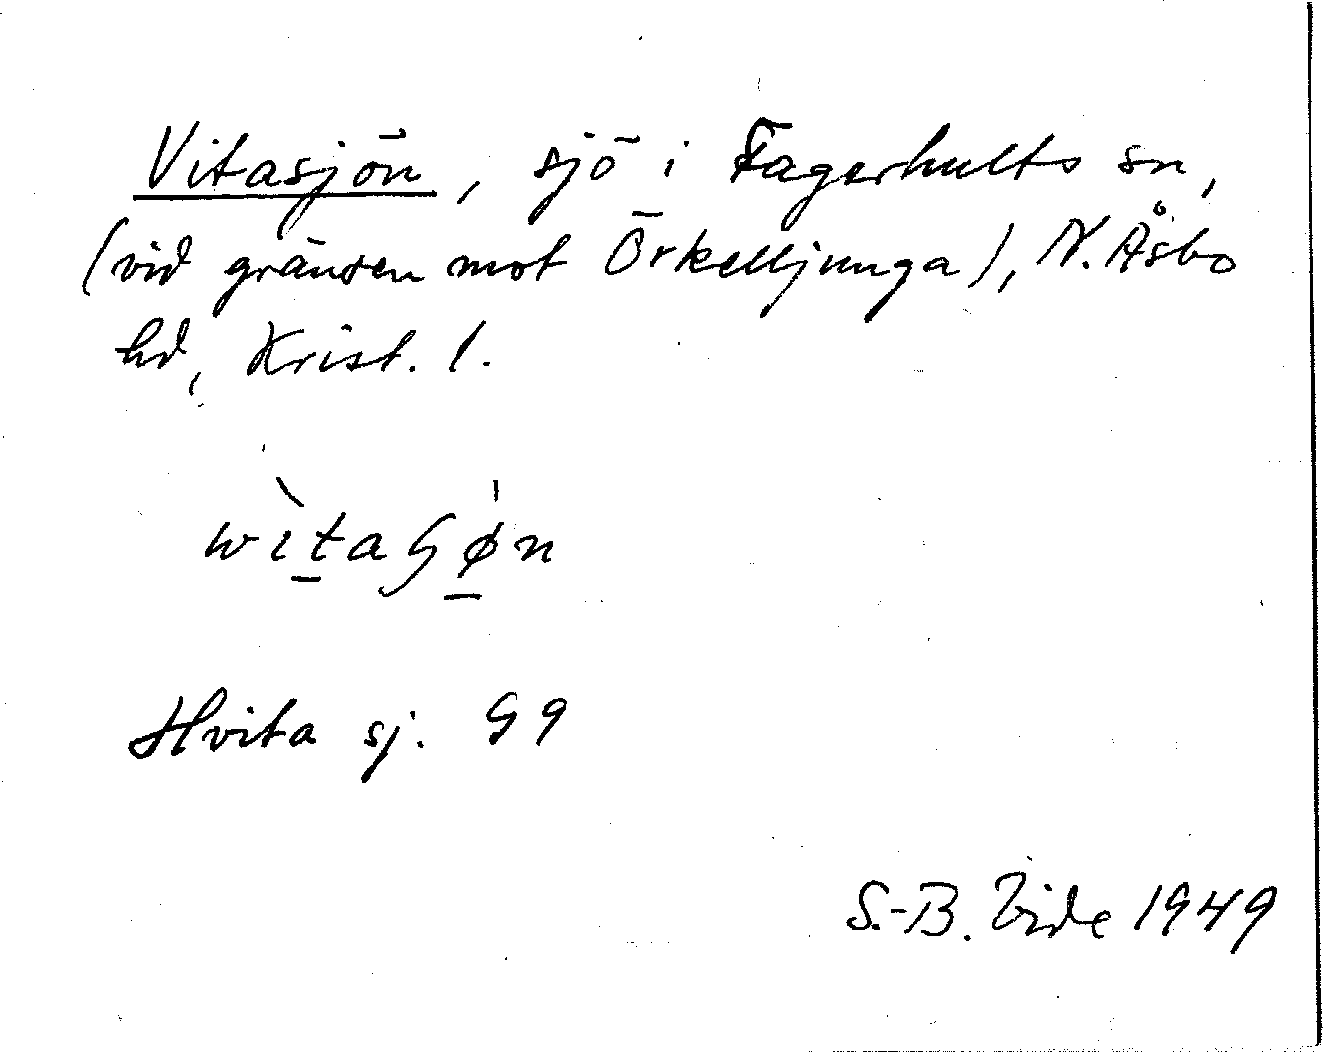 Vitasjön, sjö i Fagerhults sn,
(vid gränsen mot Örkelljunga), N. Åsbo
hd, Krist. l.
Hvita sj. G9
S.-B. Vide 1949